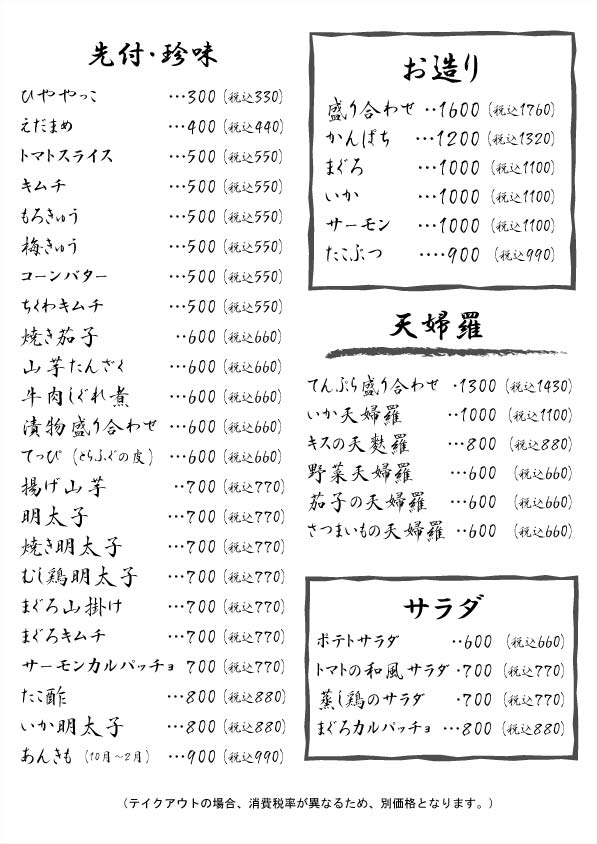 先付・珍味
ひややっこ …300（税込330）
えだまめ …400（税込440）
トマトスライス …500（税込550）
キムチ …500（税込550）
もろきゅう …500（税込550）
梅きゅう …500（税込550）
コーンバター …500（税込550）
ちくわキムチ …500（税込550）
焼き茄子 ‥600（税込660）
山芋たんざく …600（税込660）
牛肉しぐれ煮 …600（税込660）
漬物盛り合わせ …600（税込660）
てっぴ（とらふぐの皮） …600（税込660）
揚げ山芋 ‥700（税込770）
明太子 …700（税込770）
焼き明太子 …700（税込770）
むし鶏明太子 …700（税込770）
まぐろ山掛け …700（税込770）
まぐろキムチ …700（税込770）
サーモンカルパッチョ 700（税込770）
たこ酢 …800（税込880）
いか明太子 …800（税込880）
あんきも（10月～2月） …900（税込990）
お造り
盛り合わせ ‥1600（税込1760）
かんぱち …1200（税込1320）
まぐろ …1000（税込1100）
いか …1000（税込1100）
サーモン …1000（税込1100）
たこぶつ ‥‥900（税込990）
天婦羅
てんぷら盛り合わせ ・1300（税込1430）
いか天婦羅 ‥1000（税込1100）
キスの天麩羅 …800（税込880）
野菜天婦羅 …600（税込660）
茄子の天婦羅 …600（税込660）
さつまいもの天婦羅 ‥600（税込660）
サラダ
ポテトサラダ ‥600（税込660）
トマトの和風サラダ ・700（税込770）
蒸し鶏のサラダ ・700（税込770）
まぐろカルパッチョ …800（税込880）
（テイクアウトの場合、消費税率が異なるため、別価格となります。）